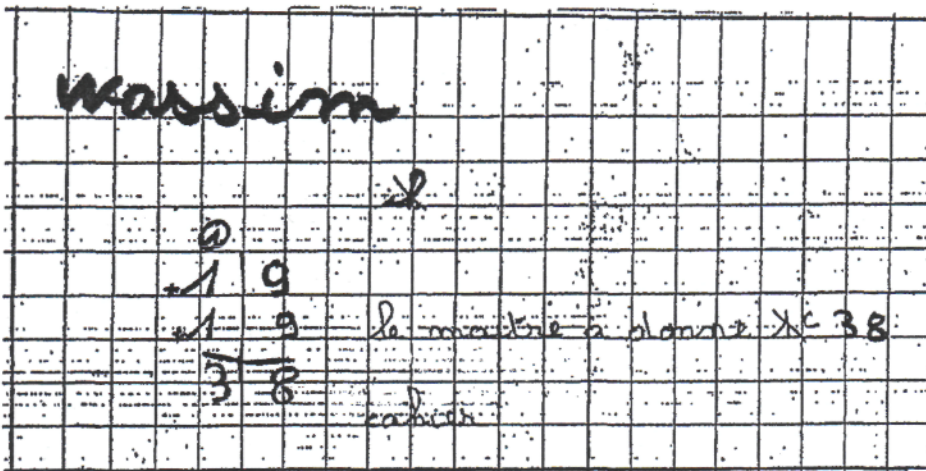 wassim
1 9
+1 9 le maitre a donne 38
3 8
cahier